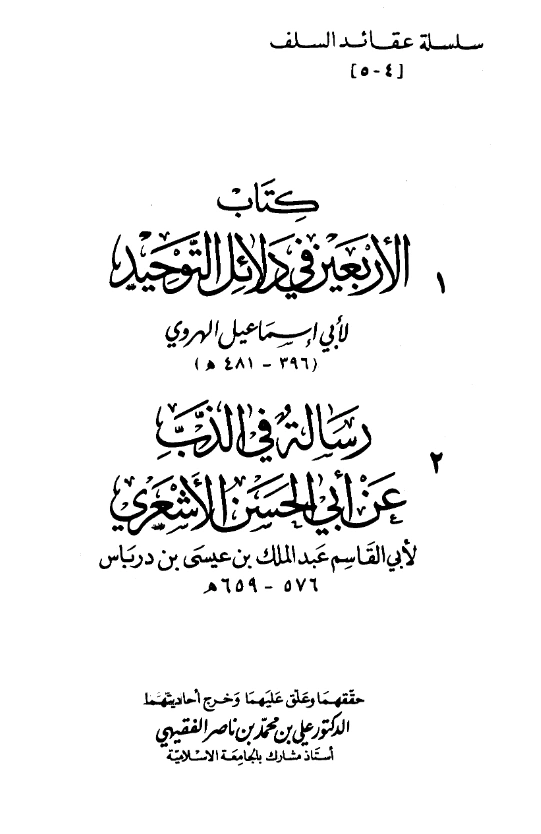 سلسلة عقائد السلف
[٤-٥]
كتاب
١ الأربعين في دلائل التوحيد
لأبي إسماعيل الهروي
(٣٩٦ - ٤٨١ ه)
٢ رسالة في الذب
عن أبي الحسن الأشعري
لأبي القاسم عبد الملك بن عيسى بن درباس
٥٧٦ - ٦٥٩ ه
حققهما وعلق عليهما وخرج أحاديثهما
الدكتور علي بن محمد بن ناصر الفقيهي
أستاذ مشارك بالجامعة الاسلامية